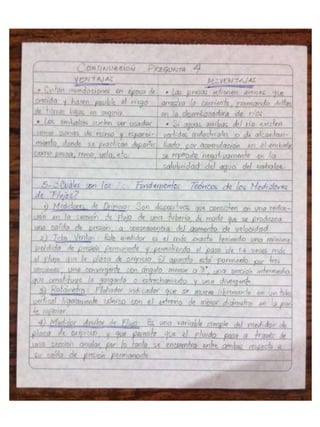 CONTINUACIÓN PREGUNTA 4
VENTAJAS
DESVENTAJAS
• Evitan inundaciones en época de
crecida y hacen posible el riego
de tierras bajas en sequía.
• Los embalses suelen ser usados
como zonas de recreo y esparci-
miento, donde se practican deportes
como pesca, remo, vela, etc.
• Las presas retienen arenas que
arrastra la corriente, formando deltas
en la desembocadura de ríos.
• Si aguas arriba del río existen
vertidos industriales o de alcantari-
llado por acumulación en el embalse
se repercute negativamente en la
salubridad del agua del embalse.
5- ¿Cuáles son los Fundamentos Teóricos de los Medidores
de Flujos?
1) Medidores de Orificio: Son dispositivos que consisten en una reduc-
ción en la sección de flujo de una tubería, de modo que se produzca
una caída de presión, a consecuencia del aumento de velocidad.
2) Tubo Venturi: Este medidor es el más exacto teniendo una mínima
pérdida de presión permanente y permitiendo el paso de 1.6 veces más
el flujo que la placa de orificio. El aparato está formado por tres
secciones, una convergente con ángulo menor a 7°, una sección intermedia
que constituye la garganta o estrechamiento, y una divergente
3) Rotámetro: Flotador indicador que se mueve libremente en un tubo
vertical ligeramente cónico con el extremo de menor diámetro en la par-
te inferior.
4) Medidor Anular de Flujo: Es una variable simple del medidor de
placa de orificio y que permite que el fluido pase a través de
una sección anular, por lo tanto se encuentra entre ambos respecto a
su caída de presión permanente.